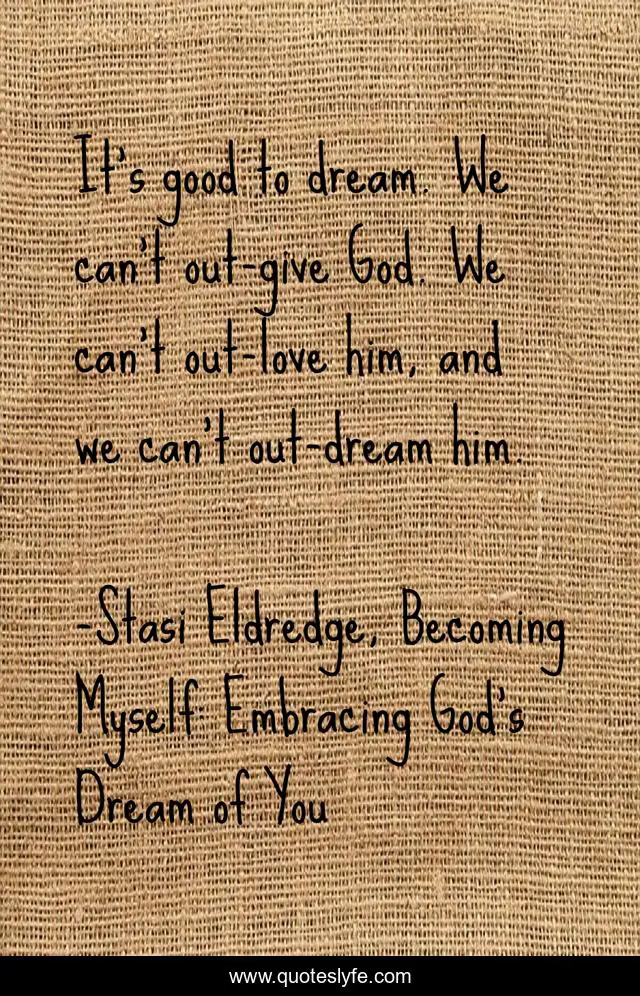 It's good to dream. We
can't out-give God. We
can't out-love him, and
we can't out-dream him.
-Stasi Eldredge, Becoming
Myself: Embracing God's
Dream of You
www.quoteslyfe.com